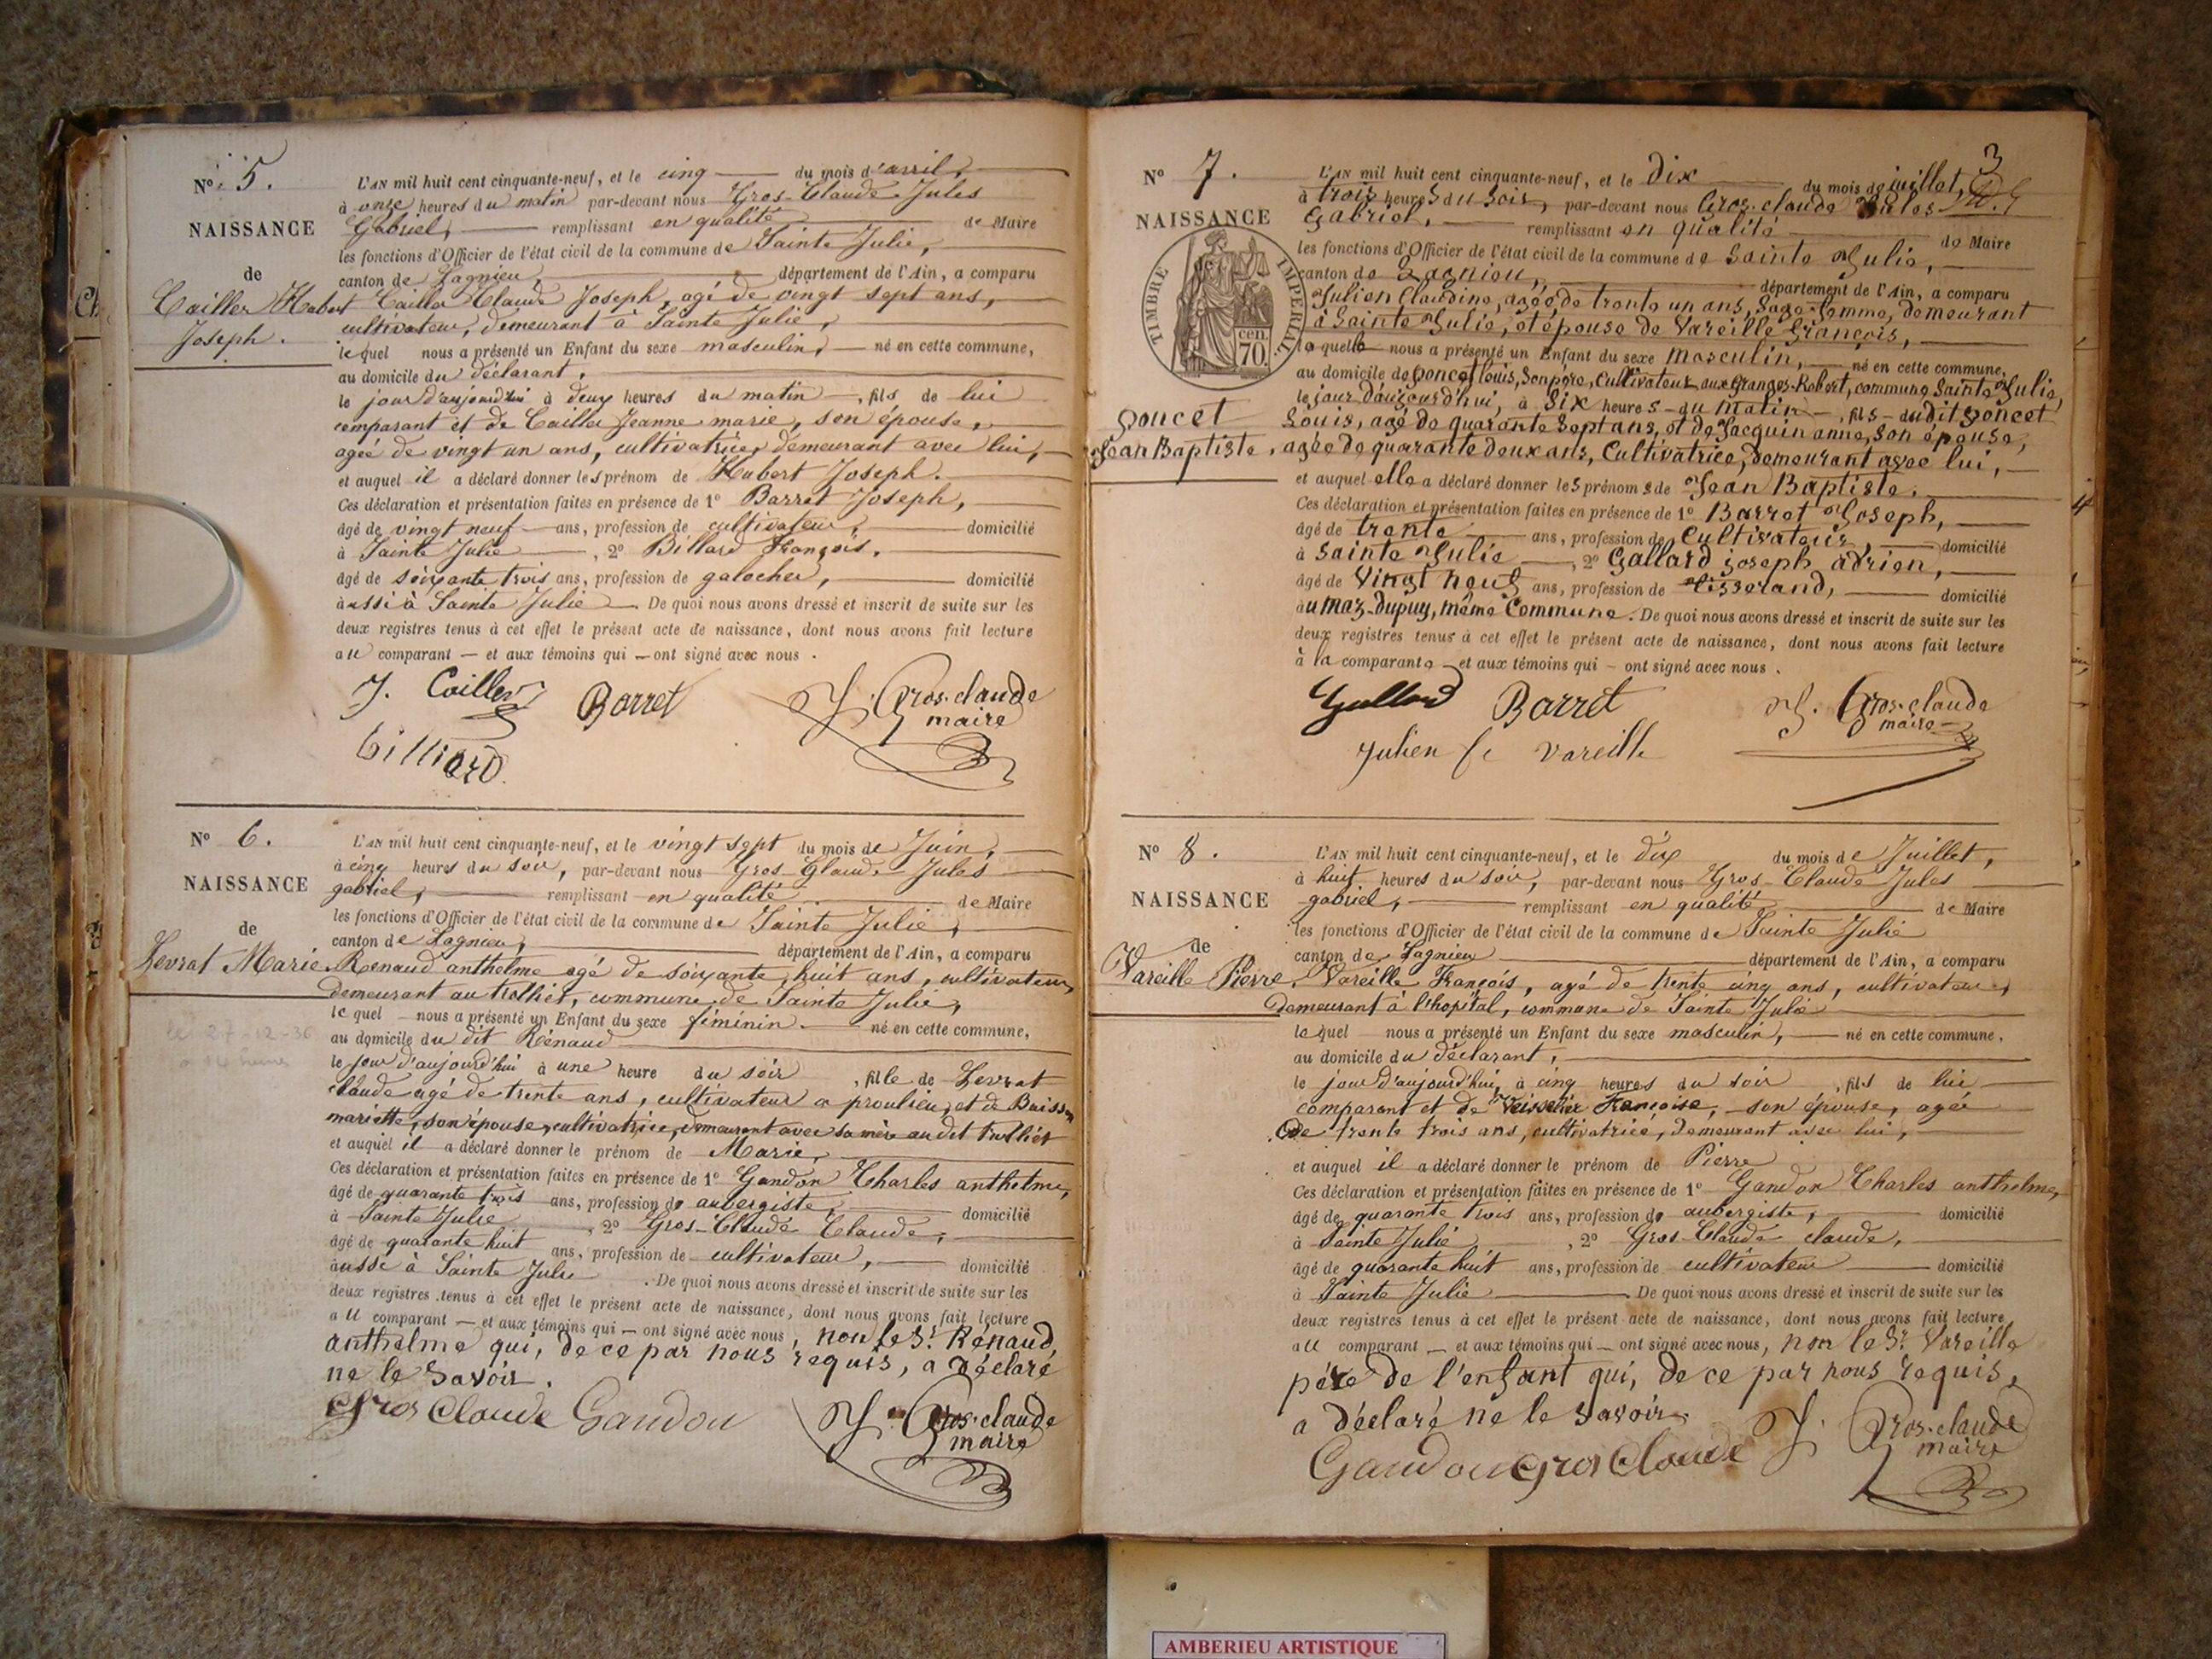 Nº 5.
NAISSANCE
de
Cailler Hubert
Joseph.
L'AN mil huit cent cinquante-neuf, et le cinq du mois d'avril,
à onze heures du matin par-devant nous Gros-Claude Jules
Gabriel, remplissant en qualité de Maire
les fonctions d'Officier de l'état civil de la commune de Sainte Julie,
canton de Lagnieu département de l'Ain, a comparu
Cailler Claude Joseph, agé de vingt sept ans,
cultivateur, demeurant à Sainte Julie,
lequel nous a présenté un Enfant du sexe masculin, né en cette commune,
au domicile du déclarant,
le jour d'aujourd'hui à deux heures du matin, fils de lui
comparant et de Cailler Jeanne marie, son épouse,
agée de vingt un ans, cultivatrice, demeurant avec lui,
et auquel il a déclaré donner les prénom de Hubert Joseph.
Ces déclaration et présentation faites en présence de 1º Barret Joseph,
âgé de vingt neuf ans, profession de cultivateur, domicilié
à Sainte Julie, 2º Billard François,
âgé de soixante trois ans, profession de galocher, domicilié
aussi à Sainte Julie. De quoi nous avons dressé et inscrit de suite sur les
deux registres tenus à cet effet le présent acte de naissance, dont nous avons fait lecture
au comparant — et aux témoins qui — ont signé avec nous.
J. Cailler Barret J. Gros-claude
maire
billiard
Nº 6.
NAISSANCE
de
Levrat Marie.
L'AN mil huit cent cinquante-neuf, et le vingt sept du mois de Juin,
à cinq heures du soir, par-devant nous Gros-Claude Jules
gabriel, remplissant en qualité de Maire
les fonctions d'Officier de l'état civil de la commune de Sainte Julie,
canton de Lagnieu, département de l'Ain, a comparu
Renaud anthelme agé de soixante huit ans, cultivateur,
demeurant au trolliet, commune de Sainte Julie,
lequel nous a présenté un Enfant du sexe féminin. né en cette commune,
au domicile du dit Rénaud
le jour d'aujourd'hui à une heure du soir, fille de Levrat
Claude agé de trente ans, cultivateur a proulieu, et de
mariette, son épouse, cultivatrice, demeurant avec sa mère au dit trolliet
et auquel il a déclaré donner le prénom de Marie,
Ces déclaration et présentation faites en présence de 1º Gandon Charles anthelme,
âgé de quarante trois ans, profession de aubergiste, domicilié
à Sainte Julie, 2º Gros-Claude Claude,
âgé de quarante huit ans, profession de cultivateur, domicilié
aussi à Sainte Julie. De quoi nous avons dressé et inscrit de suite sur les
deux registres tenus à cet effet le présent acte de naissance, dont nous avons fait lecture
au comparant — et aux témoins qui — ont signé avec nous, non le Sr. Renaud
anthelme qui, de ce par nous requis, a déclaré
ne le savoir.
Gros Claude Gandon J. Gros-claude
maire
3
Nº 7.
NAISSANCE
de
TIMBRE IMPERIAL
70 cen
poncet
Jean Baptiste.
L'AN mil huit cent cinquante-neuf, et le dix du mois de juillet,
à trois heures du soir, par-devant nous Gros-claude Jules
Gabriel, remplissant en qualité de Maire
les fonctions d'Officier de l'état civil de la commune de Sainte Julie,
canton de Lagnieu, département de l'Ain, a comparu
Julien Claudine, agée de trente un ans, sage-femme, demeurant
à Sainte Julie, et épouse de Vareille françois,
laquelle nous a présenté un Enfant du sexe masculin, né en cette commune,
au domicile de poncet louis, son père, Cultivateur aux Granges-Robert, commune Sainte Julie,
le jour d'aujourd'hui, à six heures du matin, fils du dit poncet
Louis, agé de quarante sept ans, et de Jacquin anne, son épouse,
agée de quarante deux ans, Cultivatrice, demeurant avec lui,
et auquel elle a déclaré donner les prénoms de Jean Baptiste.
Ces déclaration et présentation faites en présence de 1º Barret Joseph,
âgé de trente ans, profession de Cultivateur, domicilié
à Sainte Julie, 2º Gallard joseph adrien,
âgé de Vingt neuf ans, profession de tisserand, domicilié
au maz-Dupuy, même Commune. De quoi nous avons dressé et inscrit de suite sur les
deux registres tenus à cet effet le présent acte de naissance, dont nous avons fait lecture
à la comparante et aux témoins qui — ont signé avec nous.
Gallard Barret J. Gros-claude
maire
Julien fe vareille
Nº 8.
NAISSANCE
de
Vareille Pierre.
L'AN mil huit cent cinquante-neuf, et le dix du mois de Juillet,
à huit heures du soir, par-devant nous Gros-Claude Jules
gabriel, remplissant en qualité de Maire
les fonctions d'Officier de l'état civil de la commune de Sainte Julie
canton de Lagnieu département de l'Ain, a comparu
Vareille François, agé de trente cinq ans, cultivateur,
demeurant à l'hopital, commune de Sainte Julie
lequel nous a présenté un Enfant du sexe masculin, né en cette commune,
au domicile du déclarant,
le jour d'aujourd'hui, à cinq heures du soir, fils de lui
comparant et de Françoise, son épouse, agée
de trente trois ans, cultivatrice, demeurant avec lui,
et auquel il a déclaré donner le prénom de Pierre
Ces déclaration et présentation faites en présence de 1º Gandon Charles anthelme,
âgé de quarante trois ans, profession de aubergiste, domicilié
à Sainte Julie, 2º Gros-Claude claude,
âgé de quarante huit ans, profession de cultivateur domicilié
à Sainte Julie De quoi nous avons dressé et inscrit de suite sur les
deux registres tenus à cet effet le présent acte de naissance, dont nous avons fait lecture
au comparant — et aux témoins qui — ont signé avec nous, non le Sr. Vareille
père de l'enfant qui, de ce par nous requis,
a déclaré ne le savoir.
Gandon Gros Claude J. Gros-claude
maire
AMBERIEU ARTISTIQUE